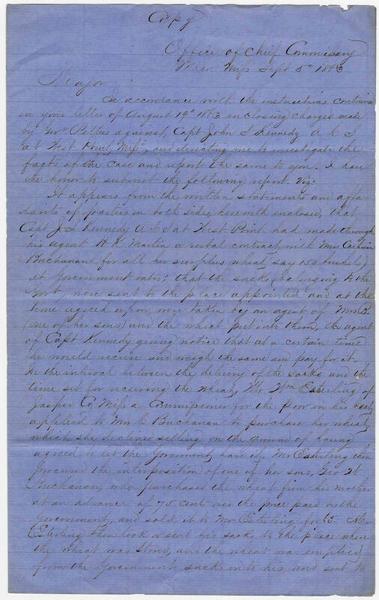 Copy
Office of Chief Commissary
Miss Sept 5th 1863
Major
In accordance with the instructions contained
in your letter of August 19th 1863 enclosing charges made
by Mr. against Capt John S Kennedy A. C. S
at West Point, Miss and directing me to investigate the
facts of the case and report the same to you. I have
the honor to submit the following report. Viz
It appears from the written statements and affi-
davits of parties on both sides, herewith enclosed, that
Capt J. S Kennedy A C S at West Point had made through
his agent Martin a verbal contract with Mrs
Buchanan for all her surplus wheat, say 150 bushels
at Government rates; that the sacks belonging to the
Govt, were sent to the place appointed and at the
time agreed upon, were taken by an agent of Mrs B
(one of her sons) and the wheat put into them, the agent
of Capt Kennedy giving notice that at a certain time
he would receive and weigh the same and pay for it.
In the interval between the delivery of the sacks and the
time set for receiving the wheat, Mr Wm Easterling of
Jasper Co Miss a Commissioner for the Poor in his
applied to Mrs Buchanan to purchase her wheat,
which she declined selling on the ground of having
agreed to let the Government have it. Mr Easterling then
procured the interposition of one of her sons,
Buchanan, who purchased the wheat from his mother
at an advance of 75 cents over the price paid by the
Government, and sold it to Mr Easterling for $3. Mr
Easterling then took or sent his sacks to the place where
the wheat was stored, and the wheat was emptied
from the Government sacks into his, and sent to